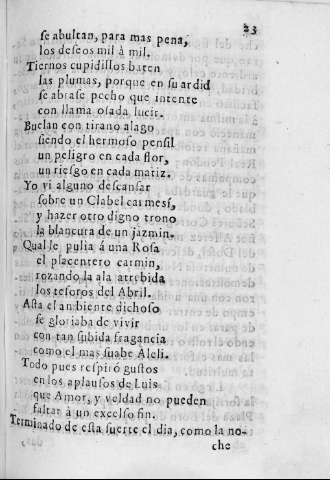 23
se abultan, para mas pena,
los deseos mil à mil.
Tiernos cupidillos baten
las plumas, porque en su ardid
se abrase pecho que intente
con llama osada lucir.
Buelan con tirano alago
siendo el hermoso pensil
un peligro en cada flor,
un riesgo en cada matiz.
Yo vi alguno descansar
sobre un Clabel carmesi,
y hazer otro digno trono
la blancura de un jazmin.
Qual le pulia á una Rosa
el placentero carmin,
rozando la ala atrebida
los tesoros del Abril.
Asta el ambiente dichoso
se gloriaba de vivir
con tan subida fragancia
como el mas suabe Aleli.
Todo pues respiró gustos
en los aplausos de Luis
que Amor, y veldad no pueden
faltar à un excelso fin.
Terminado de esta suerte el dia, como la no-
che